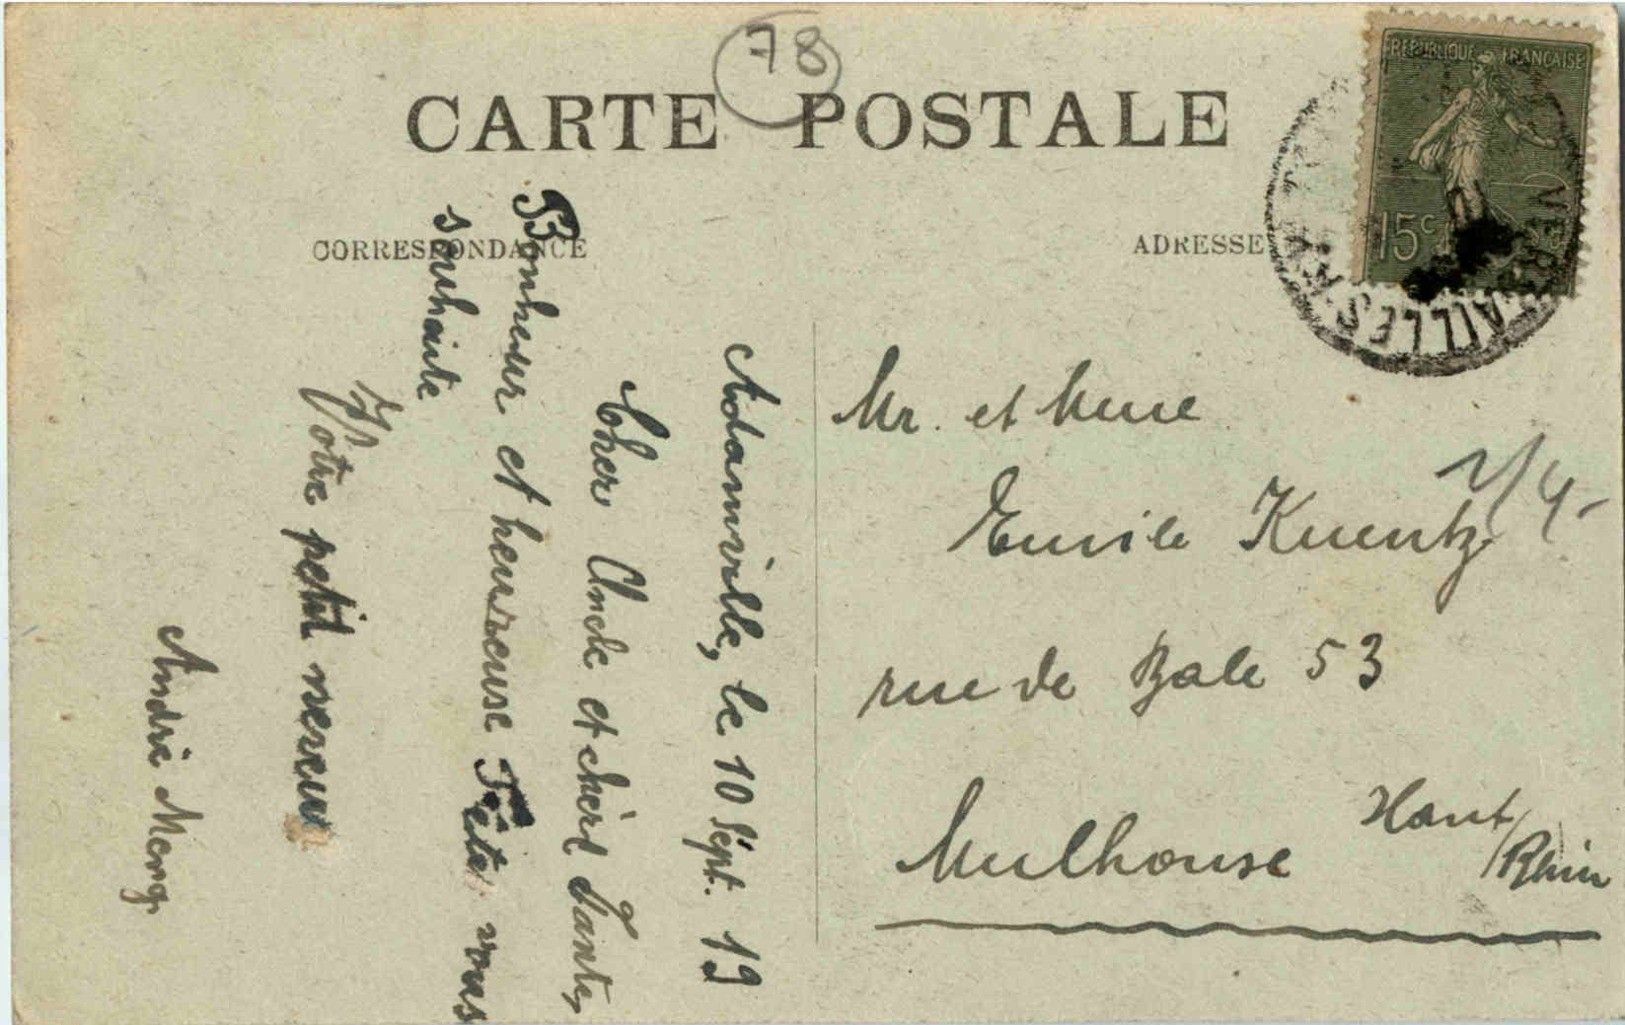 78
CARTE POSTALE
CORRESPONDANCE
ADRESSE
REPUBLIQUE FRANÇAISE
15c
VERSAILLES
Adamville, le 10 Sept. 19
Cher Oncle et chère Tante,
Bonheur et heureuse Fête vous
souhaite
Votre petit neveu
André Meng.
Mr. et Mme
Emile Kuentz
rue de Bale 53
Mulhouse
Haut/
Rhin